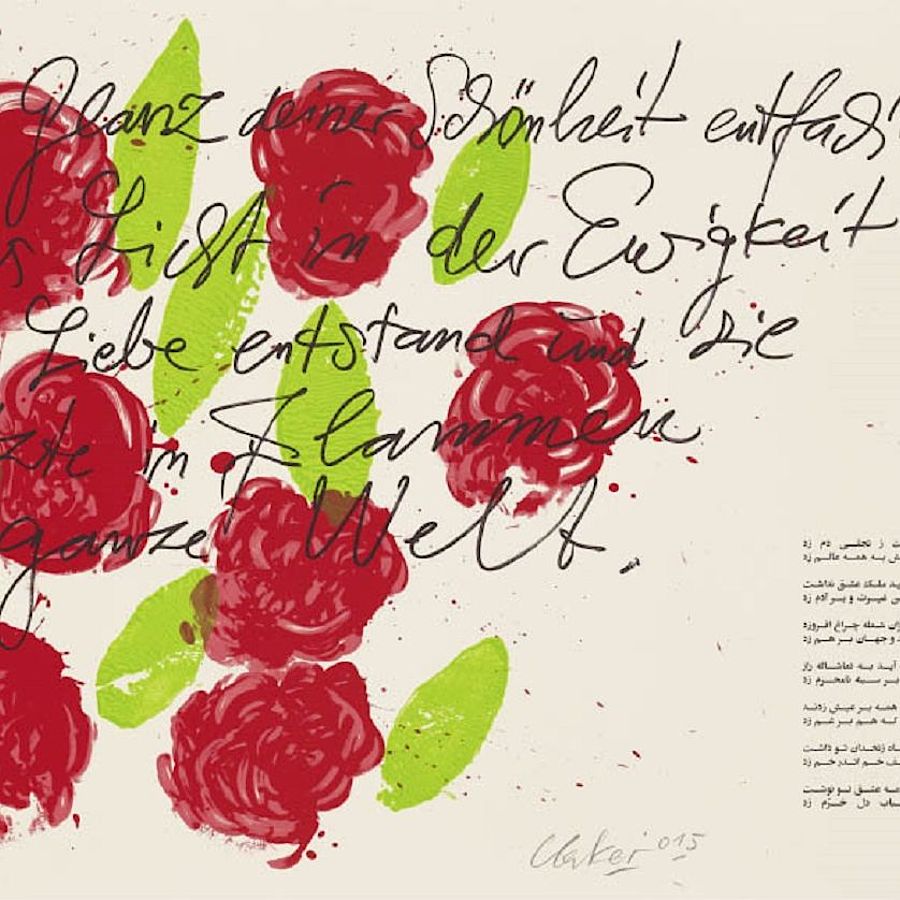 Glanz deiner Schönheit entfach
s Licht in der Ewigkeit
Liebe entstand und sie
zte in Flammen
ganze Welt.
ت ز تجلی دم زد
ش به همه عالم زد
ید ملک عشق نداشت
ن غیرت و بر آدم زد
زان شعله چراغ افروزد
د و جهان بر هم زد
آید به تماشاگه راز
بر سینه نامحرم زد
همه بر عیش زدند
که هم بر غم زد
اه زنخدان تو داشت
ف خم اندر خم زد
مه عشق تو نوشت
باب دل خرم زد
015